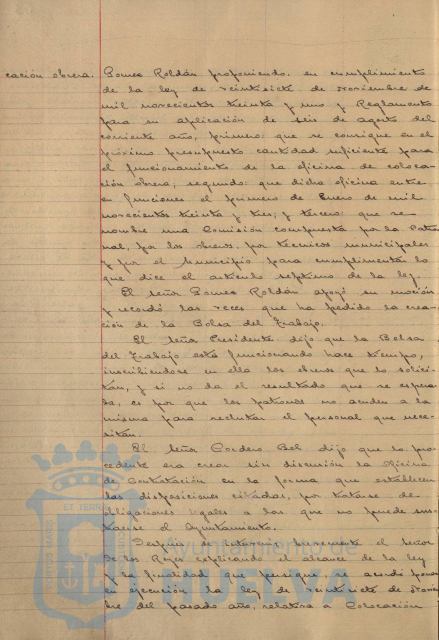 cación obrera. Gomez Roldán proponiendo, en cumplimiento
de la ley de veintisiete de Noviembre de
mil novecientos treinta y uno y Reglamento
para su aplicación de seis de agosto del
corriente año, primero: que se consigne en el
próximo presupuesto cantidad suficiente para
el funcionamiento de la oficina de coloca-
ción obrera; segundo: que dicha oficina entre
en funciones el primero de Enero de mil
novecientos treinta y tres; y tercero: que se
nombre una Comisión compuesta por la Patro-
nal, por los obreros, por técnicos municipales
y por el Municipio para cumplimentar lo
que dice el artículo septimo de la ley.
El señor Gomez Roldán apoyó su moción
y recordó las veces que ha pedido la crea-
ción de la Bolsa del Trabajo.
El señor Presidente dijo que la Bolsa
del Trabajo está funcionando hace tiempo,
inscribiendose en ella los obreros que lo solici-
tan, y si no da el resultado que se espera-
ba, es por que los patronos no acuden a la
misma para reclutar el personal que nece-
sitan.
El señor Cordero Bel dijo que lo pro-
cedente era crear sin discusión la Oficina
de Contratación en la forma que establecen
las disposiciones citadas, por tratarse de
obligaciones legales a las que no puede sus-
traerse el Ayuntamiento.
Después de intervenir brevemente el señor
de los Reyes explicando el alcance de la ley
y la finalidad que persigue, se acordó poner
en ejecución la ley de veintisiete de Noviem-
bre del pasado año, relativa a Colocación
Ayuntamiento de
HUELVA